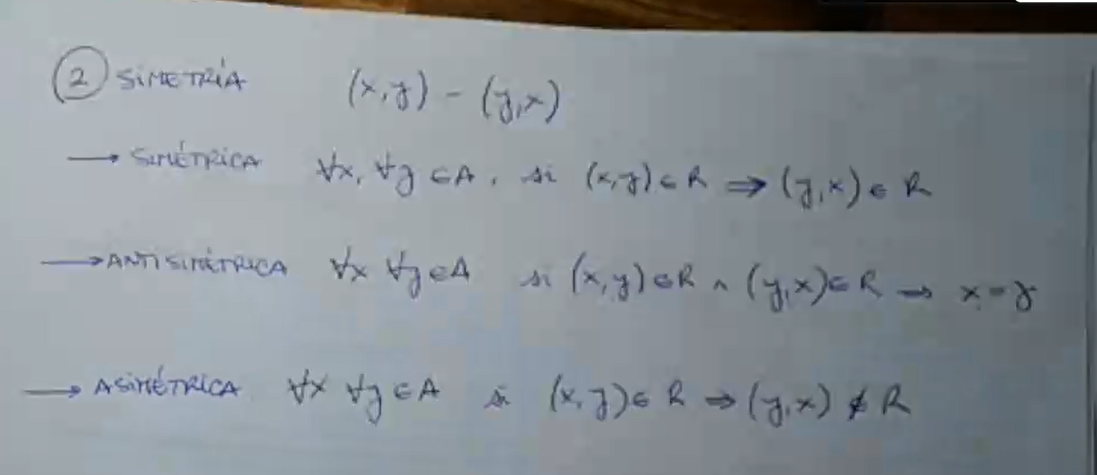 ② SIMETRÍA (x,y) - (y,x)
→ SIMÉTRICA ∀x, ∀y ∈ A, si (x,y) ∈ R ⇒ (y,x) ∈ R
→ ANTISIMÉTRICA ∀x ∀y ∈ A si (x,y) ∈ R ∧ (y,x) ∈ R ⇒ x = y
→ ASIMÉTRICA ∀x ∀y ∈ A si (x,y) ∈ R ⇒ (y,x) ∉ R